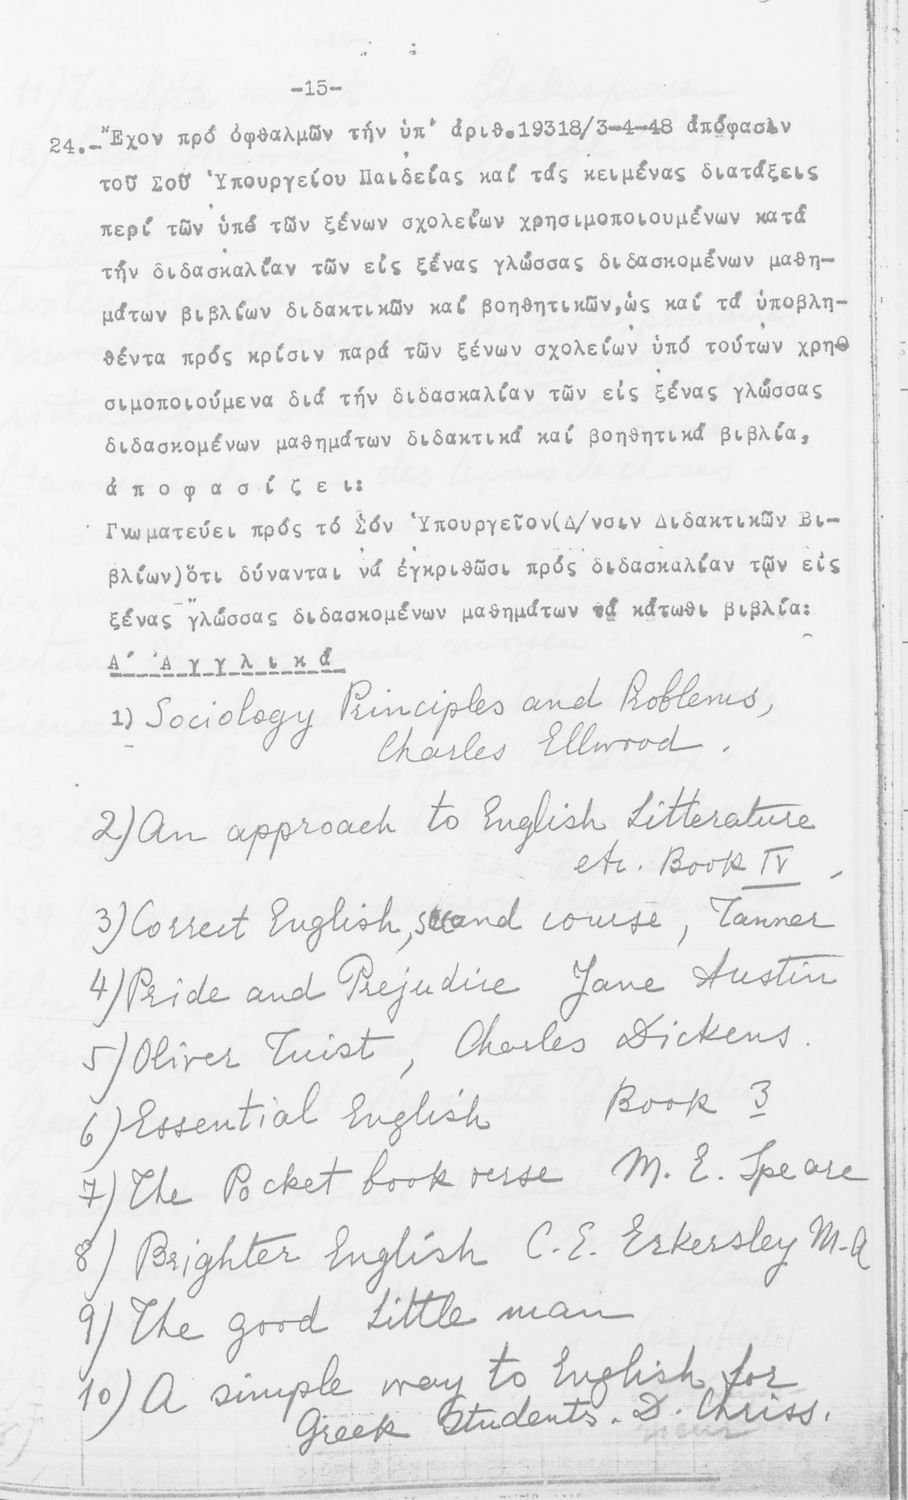 -15-
24.- Ἔχον πρό ὀφθαλμῶν τήν ὑπ' ἀριθ.19318/3-4-48 ἀπόφασιν
τοῦ Σοῦ Ὑπουργείου Παιδείας καί τάς κειμένας διατάξεις
περί τῶν ὑπό τῶν ξένων σχολείων χρησιμοποιουμένων κατά
τήν διδασκαλίαν τῶν εἰς ξένας γλώσσας διδασκομένων μαθη-
μάτων βιβλίων διδακτικῶν καί βοηθητικῶν,ὡς καί τά ὑποβλη-
θέντα πρός κρίσιν παρά τῶν ξένων σχολείων ὑπό τούτων χρη
σιμοποιούμενα διά τήν διδασκαλίαν τῶν εἰς ξένας γλώσσας
διδασκομένων μαθημάτων διδακτικά καί βοηθητικά βιβλία,
ἀ π ο φ α σ ί ζ ε ι:
Γνωματεύει πρός τό Σόν Ὑπουργεῖον(Δ/νσιν Διδακτικῶν Βι-
βλίων)ὅτι δύνανται νά ἐγκριθῶσι πρός διδασκαλίαν τῶν εἰς
ξένας γλώσσας διδασκομένων μαθημάτων τά κάτωθι βιβλία:
Α΄ Ἀ γ γ λ ι κ ά
1) Sociology Principles and Problems,
Charles Ellwood.
2) An approach to English Litterature
etc. Book IV.
3) Correct English, second course, Tanner
4) Pride and Prejudice Jane Austin
5) Oliver Tuist, Charles Dickens.
6) Essential English Book 3
7) The Pocket book verse M. E. Speare
8) Brighter English C. E. Eckersley M.A
9) The good Little man
10) A simple way to English for
Greek Students. D. Chriss.